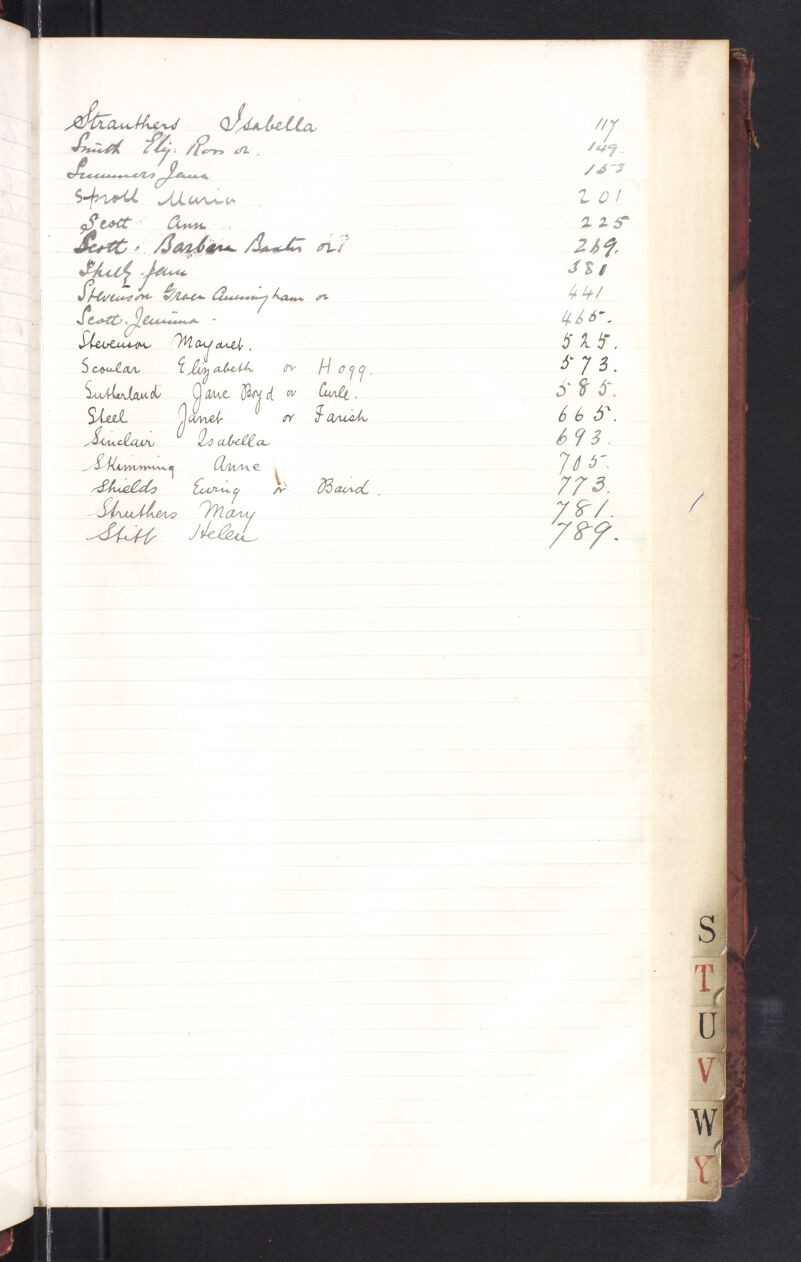 Strauthers Isabella 117
Smith Eliz. Ross or. 149.
Summers Jane 153
Sproll Maria 201
Scott Ann 225
Scott. Barbara Baxter or 269.
Jane 381
Stevenson Grace Cunningham or 441
Scott. Jemima - 465.
Stevenson Margaret. 525.
Scoular Elizabeth or Hogg. 573.
Sutherland Jane Boyd or Curle. 585.
Steel Janet or Farish 665.
Sinclair Isabella 693.
Skimming Anne 705.
Shields Ewing or Baird. 773.
Struthers Mary 781.
Stitt Helen 789.
S
T
U
V
W
Y